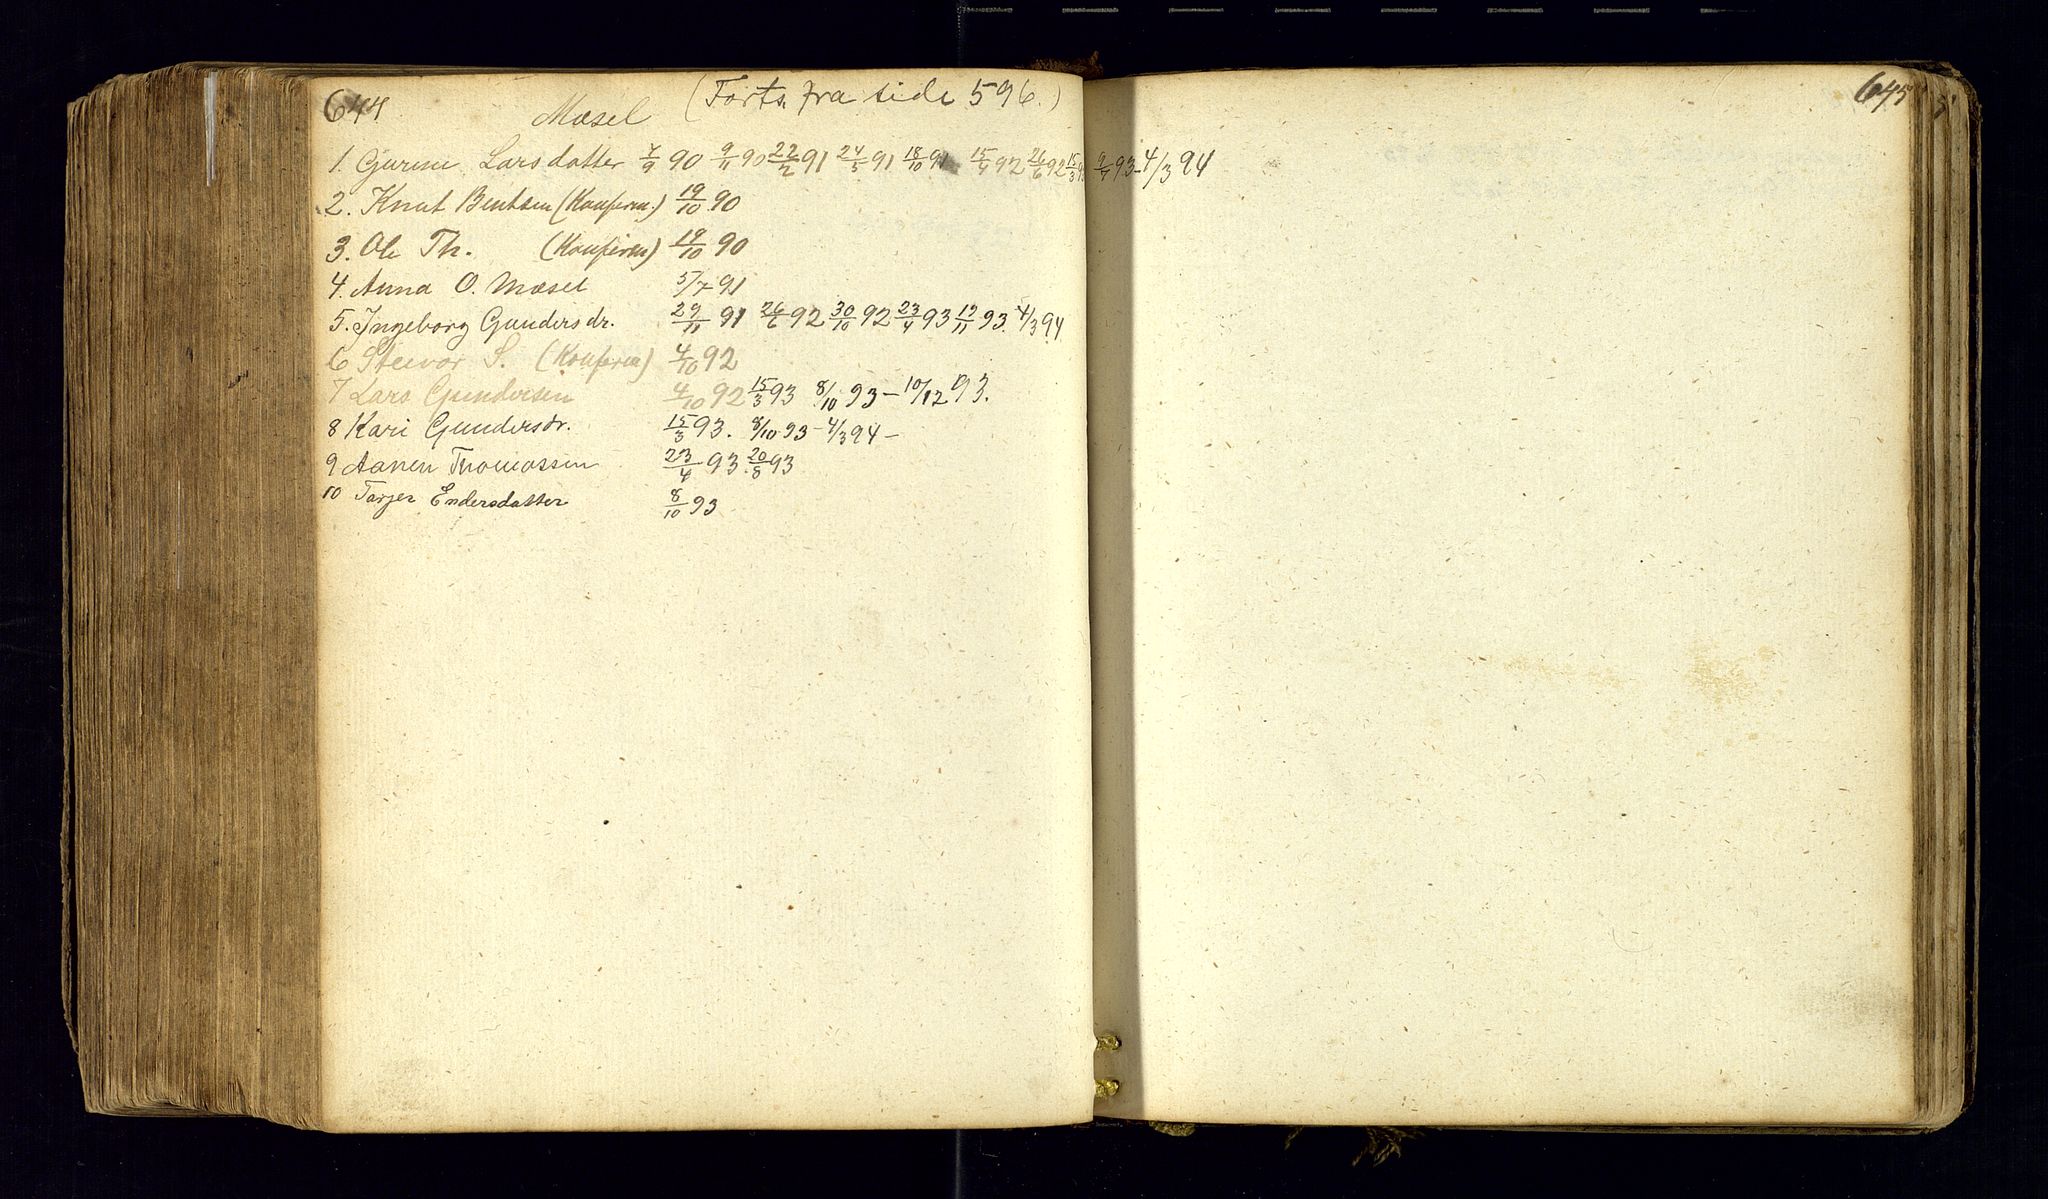 644 Mæsel (Forts. fra side 596.)
1. Gurine Larsdatter 7/9 90 9/11 90 22/2 91 24/5 91 18/10 91 15/4 92 26/6 92 15/3 93 9/7 93 - 4/3 94
2. Knut Bentsen (Konfirm.) 19/10 90
3. Ole Th. (Konfirm) 19/10 90
4. Anna O. Mæsel 5/7 91
5. Ingeborg Gundersdr. 29/11 91 26/6 92 30/10 92 23/4 93 12/11 93. 4/3 94
6 Steivor S. (Konfirm) 4/10 92
7 Lars Gundersen 4/10 92 15/3 93 8/10 93 - 10/12 93.
8 Kari Gundersdr. 15/3 93. 8/10 93 - 4/3 94 -
9 Aanen Thomassen 23/4 93 20/8 93
10 Tarjer Endersdatter 8/10 93
645